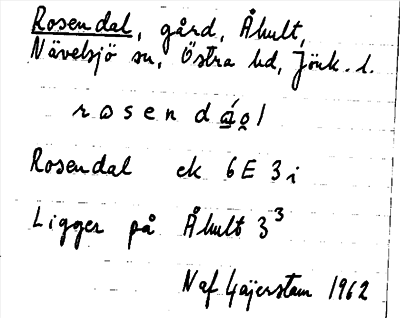 Rosendal, gård, Åhult,
Nävelsjö sn, Östra hd, Jönk. l.
rosen dá̲o̲l
Rosendal ek 6E 3i
Ligger på Åhult 3³
Naf Gajerstam 1962